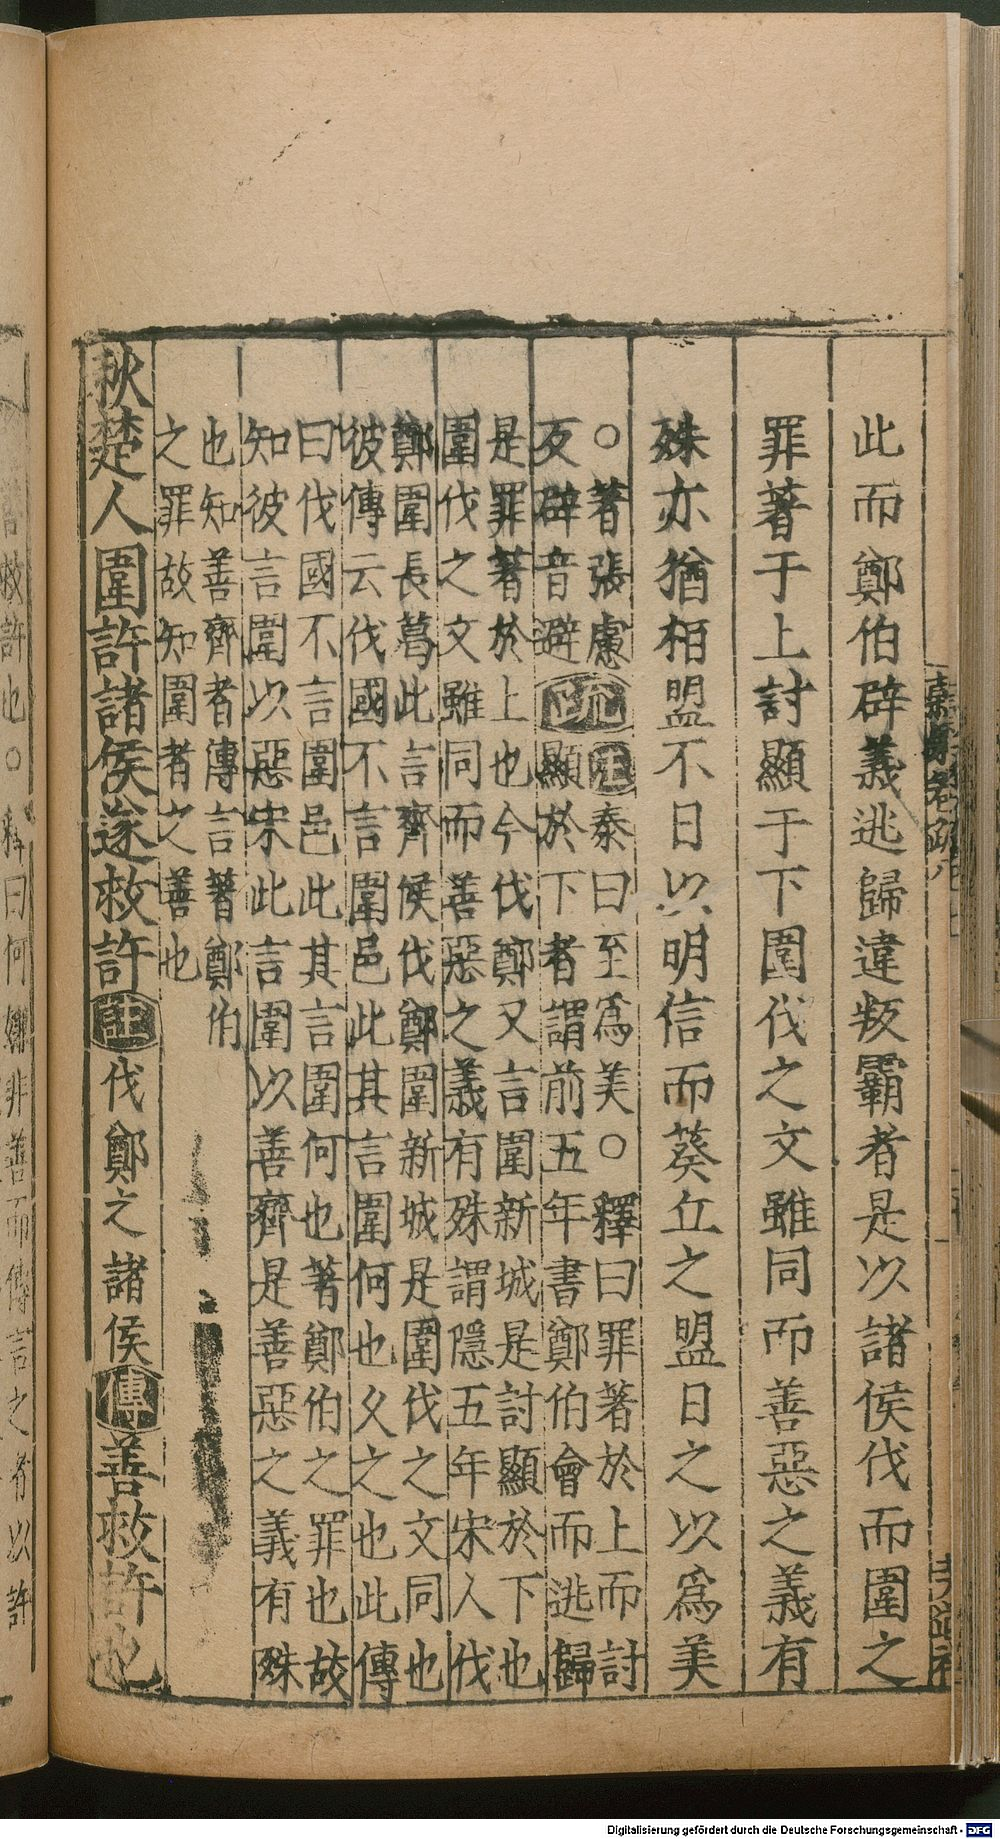 此而鄭伯辟義逃歸違叛霸者是以諸侯伐而圍之
罪著于上討顯于下圍伐之文雖同而善惡之義有
殊亦猶柤盟不日以明信而葵丘之盟日之以爲美
○著張慮
反辟音避
疏
注泰曰至爲美○釋曰罪著於上而討
顯於下者謂前五年書鄭伯會而逃歸
是罪著於上也今伐鄭又言圍新城是討顯於下也
圍伐之文雖同而善惡之義有殊謂隱五年宋人伐
鄭圍長葛此言齊侯伐鄭圍新城是圍伐之文同也
彼傳云伐國不言圍邑此其言圍何也久之也此傳
曰伐國不言圍邑此其言圍何也著鄭伯之罪也故
知彼言圍以惡宋此言圍以善齊是善惡之義有殊
也知善齊者傳言著鄭伯
之罪故知圍者之善也
秋楚人圍許諸侯遂救許注伐鄭之諸侯傳善救許也
Digitalisierung gefördert durch die Deutsche Forschungsgemeinschaft - DFG